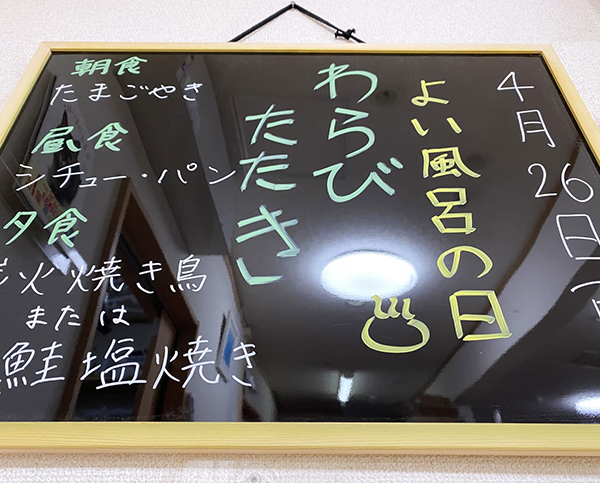 4月26日
よい風呂の日
わらび
たたき
朝食
たまごやき
昼食
シチュー・パン
夕食
火焼き鳥
または
鮭塩焼き